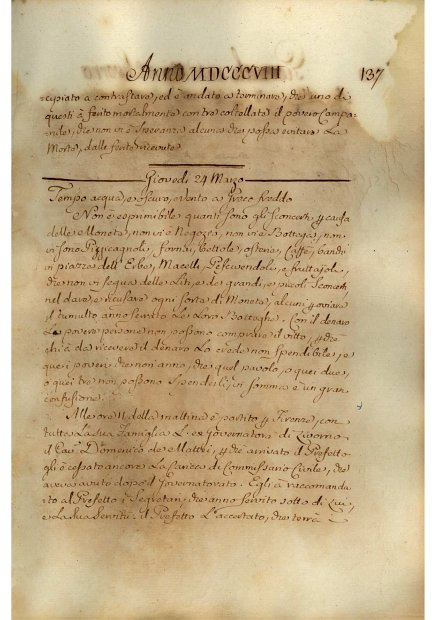 Anno MDCCCVIII 137
cipiato a contrastare, ed è andato a terminare, che uno di
questi à ferito mortalmente con tre coltellate il povero Campa-
nde, che non vi è speranza alcuna che possa evitare la
Morte, dalle ferite ricevute.
Giovedì 24 Marzo
Tempo acqua, e oscuro, vento a fresco freddo
Non è esprimibile quanti sono gli sconcerti p causa
delle Monete, non vi è Negozio, non vi è Bottega, non
vi sono Pizzicagnoli, fornai, bettole, osterie, Caffè, bandi
in piazza dell' Erbe, Macelli, Pescivendoli, e fruttajoli,
che non vi segua delle Liti, e de grandi, e piccoli sconcerti
nel dare, e ricusare ogni sorta di Moneta, alcuni p ovviare
il tumulto anno serrato le loro Botteghe. Con il denaro
le povere persone non possono comprare il vitto p che
chi à da ricevere il denaro lo crede non spendibile, e
quei poveri che non anno, che quel paolo, o quei due,
o quei tre non possono spenderli, in somma è un gran
confusione.
Alle ore 11 della mattina è partito p Firenze, con
tutta la sua Famiglia L' ex Governatore di Livorno
il Cav. Domenico de Matthei, p che arrivato il Prefetto
gli è cessato ancora la Carica di Commissario Civile, che
aveva avuto dopo il Governatorato. Egli à raccomanda
to al Prefetto i Segretari, che anno servito sotto di Lui,
e la sua servitù. il Prefetto L' accertato, che terrà